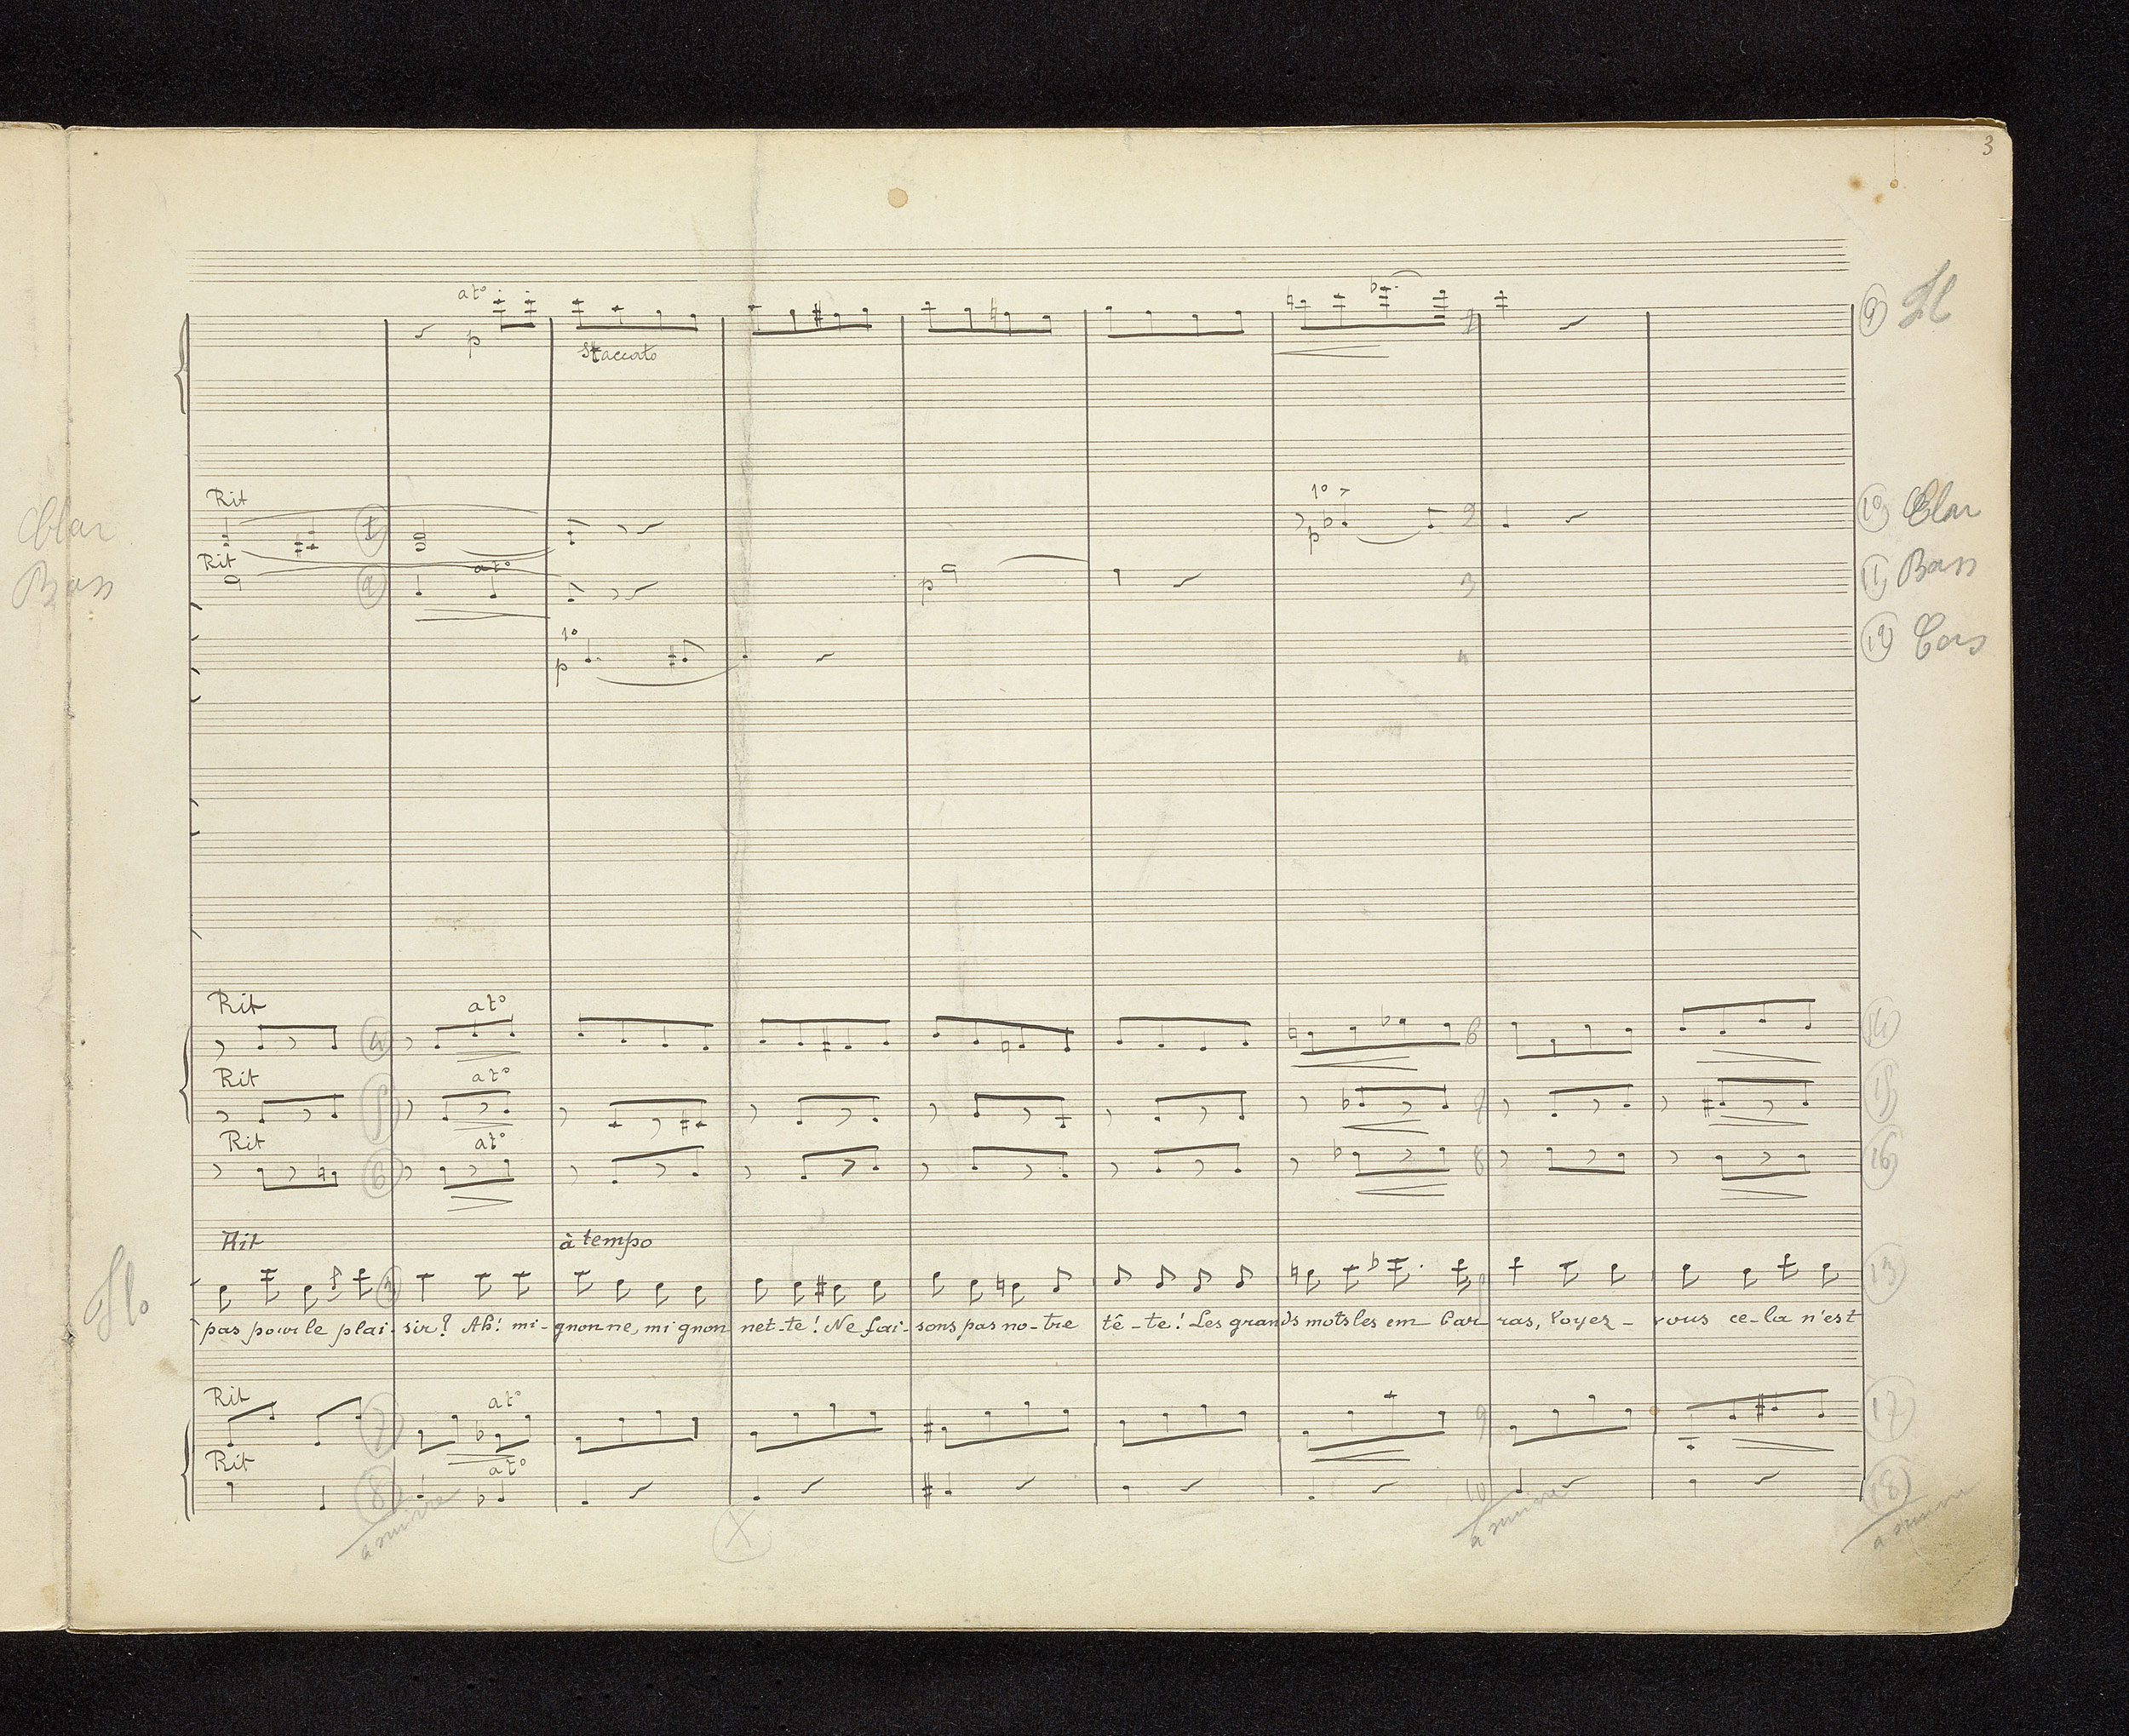 3
at° p
Staccato
9 Fl
Rit
Clar
1
1° > p
2
10 Clar
Rit
Bass
2
at°
p
3
11 Bass
1° p
4
12 Cors
Rit
4
at°
6
14
Rit
5
at°
7
15
Rit
6
at°
8
16
Rit
à tempo
3
13
pas pour le plai- sir? Ah! mi- gnonne, mi gnon net-te! Ne fai- sons pas no-tre tê-te! Les grands mots les em- bar- ras, Voyez- vous ce-la n'est
Rit
7
at°
9
17
Rit
8
at°
10
18
a suivre
X
a suivre
a suivre